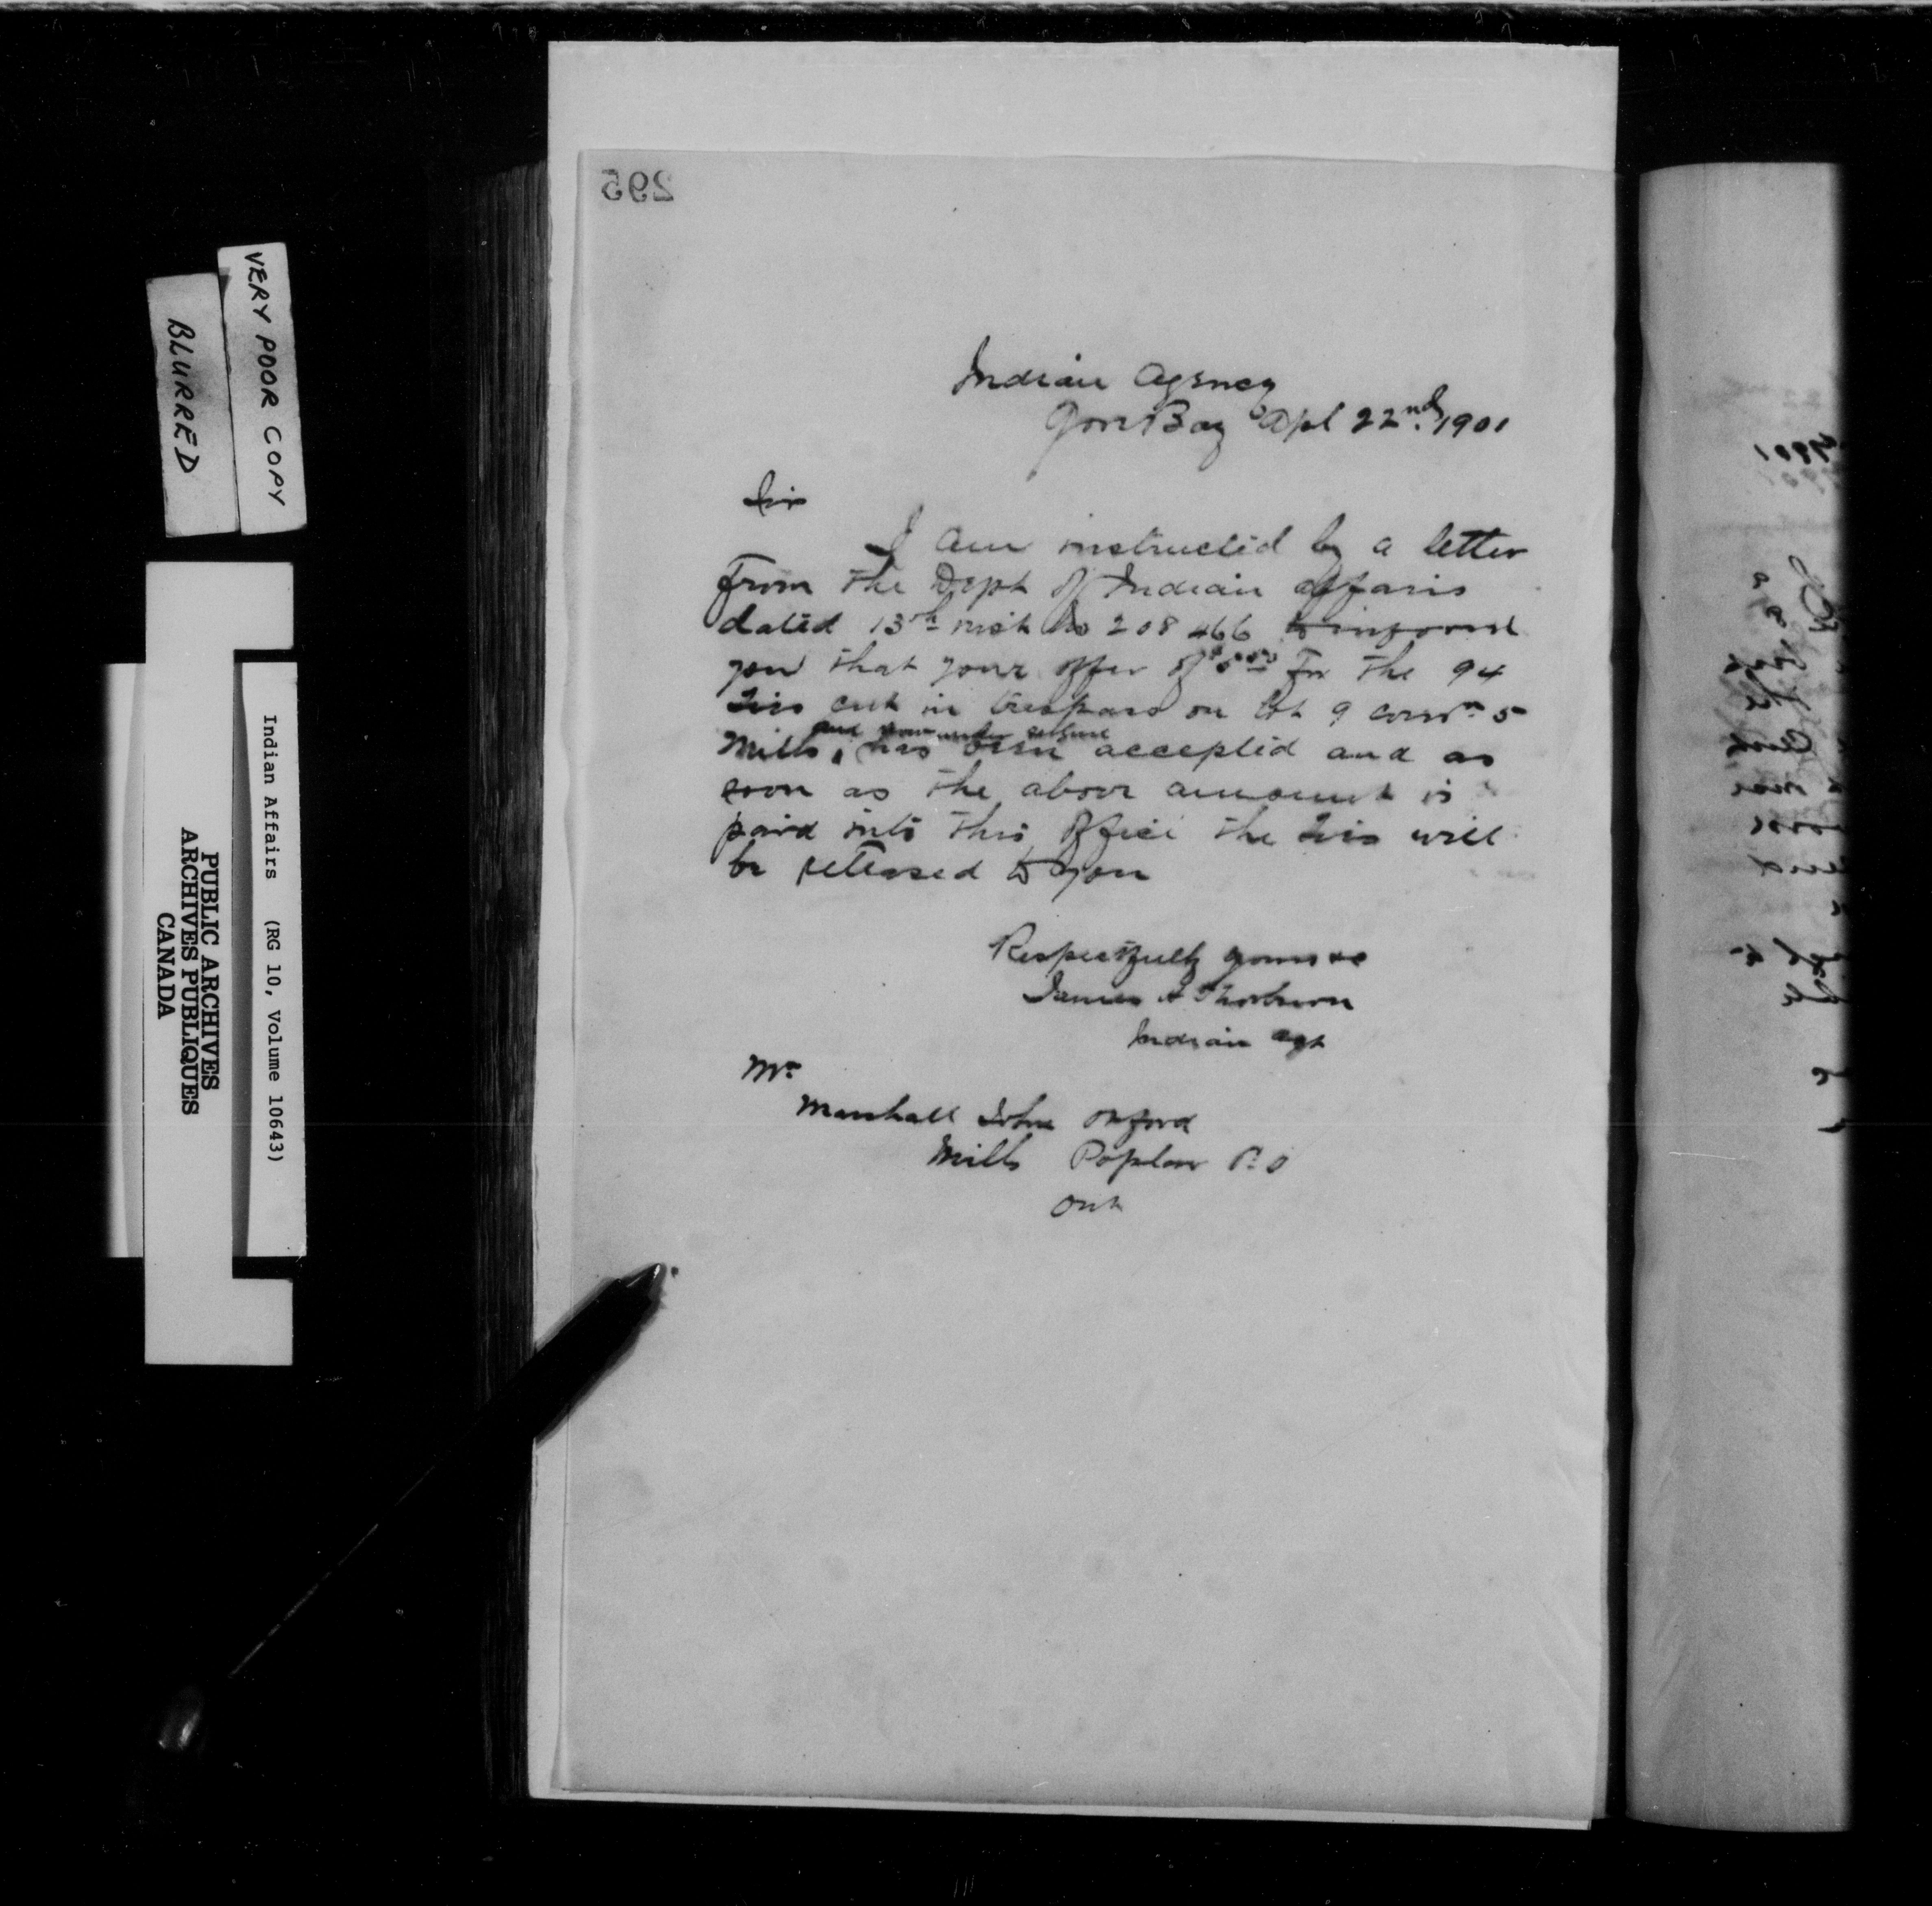 VERY POOR COPY
BLURRED
PUBLIC ARCHIVES
ARCHIVES PUBLIQUES
CANADA
Indian Affairs (RG 10, Volume 10643)
295
Indian Agency
Gore Bay Apl 22nd. 1901
Sir
I am instructed by a letter
From the Dept of Indian Affairs
dated 13th inst No 208466 to inform
you that your offer of for the 94
Ties cut in trespass on lot 9 conssn 5
and now under seizure
Mills, has been accepted and as
soon as the above amount is
paid into this Office the Ties will
be released to you
Respectfully yours &c
James H Thorburn
Indian Agt
Mr
Marshall John Orford
Mills Poplar P.O
Ont